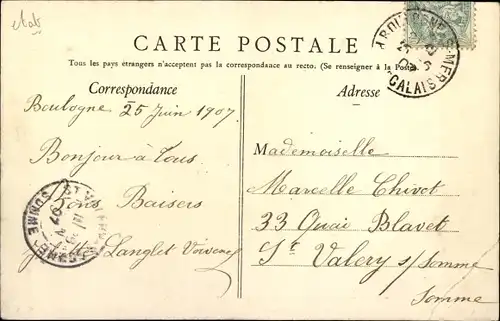 etab
CARTE POSTALE
Tous les pays étrangers n'acceptent pas la correspondance au recto. (Se renseigner à la Poste)
Correspondance
Adresse
Boulogne 25 Juin 1907
Bonjour à Tous
Bons Baisers
Langlet
Mademoiselle
Marcelle Chivot
33 Quai Blavet
St Valery s/ Somme
Somme
BOULOGNE-S-MER
CALAIS
SOMME